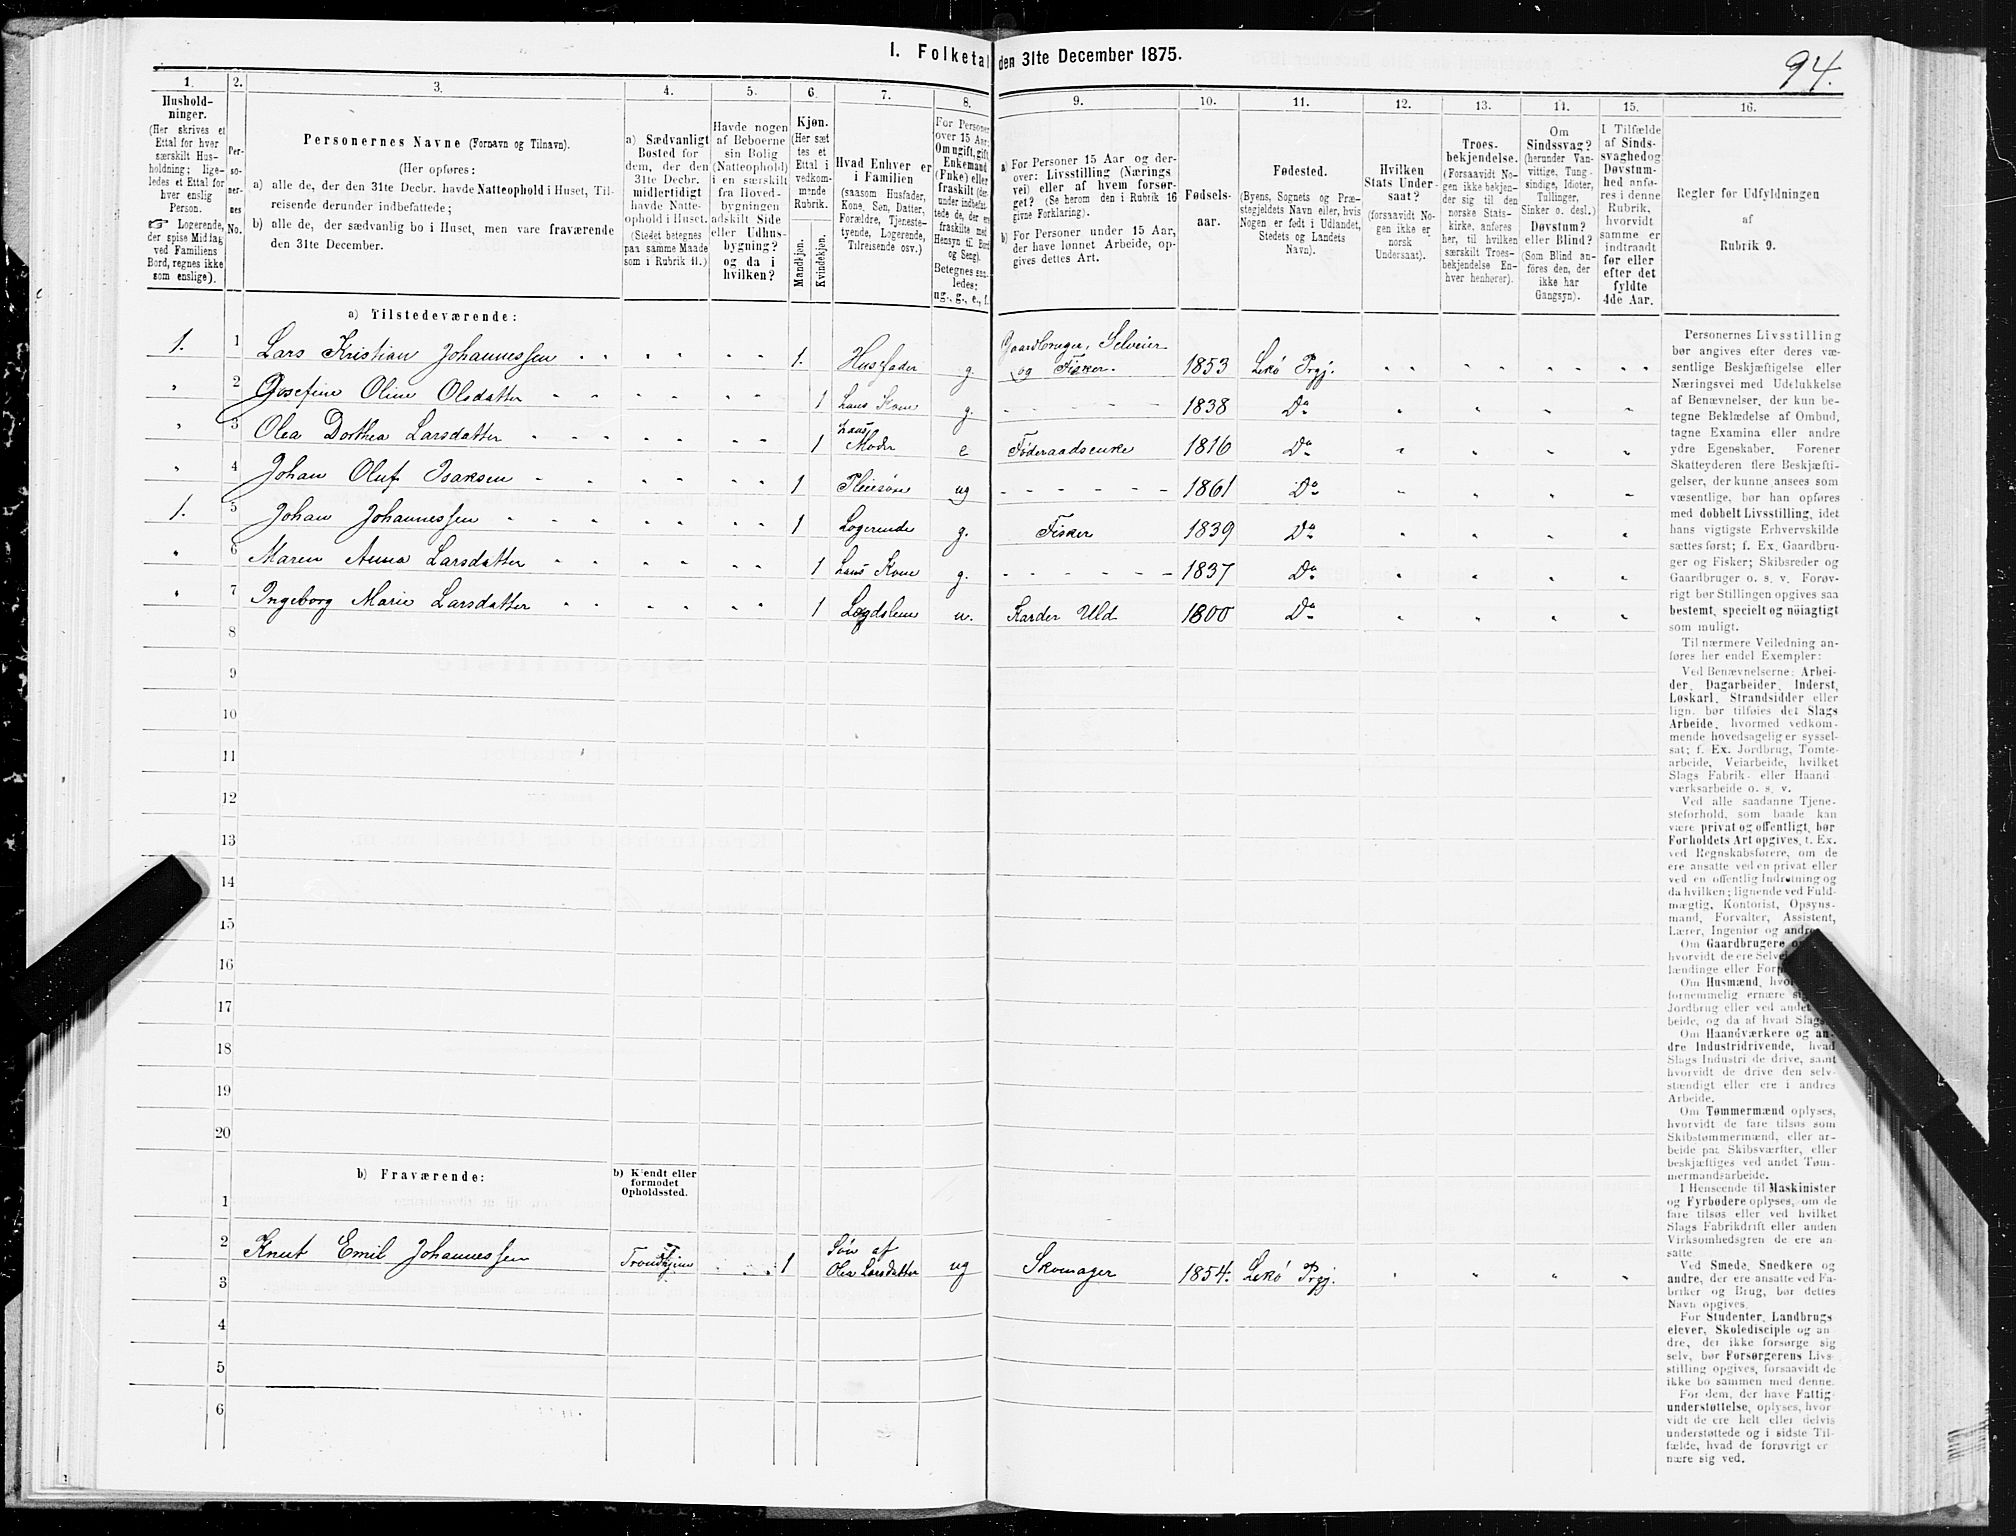 I. Folketal den 31te December 1875.
94.
1.
2.
3.
4.
5.
6.
7.
8.
9.
10.
11.
12.
13.
14.
15.
16.
Hushold-
ninger.
(Her skrives et
Ettal for hver
særskilt Hus-
holdning; lige-
ledes et Ettal for
hver enslig
Person.
☞ Logerende,
der spise Middag
ved Familiens
Bord, regnes ikke
som enslige).
Per-
so-
ner-
nes
No.
Personernes Navne (Fornavn og Tilnavn).
(Her opføres:
a) alle de, der den 31te Decbr. havde Natteophold i Huset, Til-
reisende derunder indbefattede;
b) alle de, der sædvanlig bo i Huset, men vare fraværende
den 31te December.
a) Sædvanligt
Bosted for
dem, der den
31te Decbr.
midlertidigt
havde Natte-
ophold i Huset.
(Stedet betegnes
paa samme Maade
som i Rubrik 11.)
Havde nogen
af Beboerne
sin Bolig
(Natteophold)
i en særskilt
fra Hoved-
bygningen
adskilt Side
eller Udhus-
bygning?
og da i
hvilken?
Kjøn.
(Her sæt
tes et
Ettal i
vedkom-
mende
Rubrik.
Mandkjøn.
Kvindekjøn.
Hvad Enhver er
i Familien
(saasom Husfader,
Kone, Søn, Datter,
Forældre, Tjeneste-
tyende, Logerende,
Tilreisende osv.)
For Personer
over 15 Aar:
Om ugift, gift,
Enkemand
(Enke) eller
fraskilt (der-
under indbefat-
tede de, der ere
fraskilte med
Hensyn til Bord
og Seng).
Betegnes saa-
ledes:
ug., g., e., f.
a) For Personer 15 Aar og der-
over: Livsstilling (Nærings
vei) eller af hvem forsør-
get? (Se herom den i Rubrik 16
givne Forklaring).
b) For Personer under 15 Aar,
der have lønnet Arbeide, op-
gives dettes Art.
Fødsels-
aar.
Fødested.
(Byens, Sognets og Præ-
stegjeldets Navn eller, hvis
Nogen er født i Udlandet,
Stedets og Landets
Navn).
Hvilken
Stats Under-
saat?
(forsaavidt No-
gen ikke er
norsk
Undersaat).
Troes-
bekjendelse.
(Forsaavidt No-
gen ikke bekjen-
der sig til den
norske Stats-
kirke, anføres
her, til hvilken
særskilt Troes-
bekjendelse En-
hver henhører).
Om
Sindssvag?
(herunder Van-
vittige, Tung-
sindige, Idioter,
Tullinger,
Sinker o. desl.)
Døvstum?
eller Blind?
(Som Blind an-
føres den, der
ikke har
Gangsyn).
I Tilfælde
af Sinds-
svaghed og
Døvstum-
hed anfø-
res i denne
Rubrik,
hvorvidt
samme er
indtraadt
før eller
efter det
fyldte
4de Aar.
Regler før Udfyldningen
af
Rubrik 9.
a) Tilstedeværende:
1. 1 Lars Kristian Johannessen 1. Husfader g. Gaardbruger, Selveier og Fisker. 1853 Lekø Prgj.
" 2 Josefine Oline Olsdatter 1 Hans Kone g. 1838 Do
" 3 Olea Dorthea Larsdatter 1 Hans Moder e Føderaadsenke 1816 Do
" 4 Johan Oluf Isaksen 1 Pleiesøn ug 1861 Do
1. 5 Johan Johannessen 1 Logerende g. Fisker 1839 Do
" 6 Maren Anna Larsdatter 1 Hans Kone g. 1837 Do
" 7 Ingeborg Marie Larsdatter 1 Lægdslem u. Karder Uld 1800 Do
8
9
10
11
12
13
14
15
16
17
18
19
20
b) Fraværende:
b) Kjendt eller
formodet
Opholdssted.
1
2 Knut Emil Johannessen Trondhjem 1 Søn af Olea Larsdatter ug Skomager 1854. Lekø Prgj.
3
4
5
6
Personernes Livsstilling
bør angives efter deres væ-
sentlige Beskjæftigelse eller
Næringsvei med Udelukkelse
af Benævnelser, der kun be-
tegne Beklædelse af Ombud,
tagne Examina eller andre
ydre Egenskaber. Forener
Skatteyderen flere Beskjæfti-
gelser, der kunne ansees som
væsentlige, bør han opføres
med dobbelt Livsstilling, idet
hans vigtigste Erhvervskilde
sættes først; f. Ex. Gaardbru-
ger og Fisker; Skibsreder og
Gaardbruger o. s. v. Forøv-
rigt bør Stillingen opgives saa
bestemt, specielt og nöiagtigt
som muligt.
Til nærmere Veiledning an-
føres her endel Exempler:
Ved Benævnelserne: Arbei-
der, Dagarbeider, Inderst,
Løskarl, Strandsidder eller
lign. bør tilføies det Slags
Arbeide, hvormed vedkom-
mende hovedsagelig er syssel-
sat; f. Ex. Jordbrug, Tomte-
arbeide, Veiarbeide, hvilket
Slags Fabrik- eller Haand
værksarbeide o. s. v.
Ved alle saadanne Tjene-
steforhold, som baade kan
være privat og offentligt, bør
Forholdets Art opgives, t. Ex.
ved Regnskabsførere, om de
ere ansatte ved en privat eller
ved en offentlig Indretning og
da hvilken; lignende ved Fuld-
mægtig, Kontorist, Opsyns-
mand, Forvalter, Assistent,
Lærer, Ingeniør og andre
Om Gaardbrugere
hvorvidt de ere
lændinge eller
Om Husmænd,
fornemmelig ernære
Jordbrug eller ved andet
beide, og da af hvad Slags
Om Haandværkere og an-
dre Industridrivende, hvad
Slags Industri de drive, samt
hvorvidt de drive den selv-
stændigt eller ere i andres
Arbeide.
Om Tømmermænd oplyses,
hvorvidt de fare tilsøs som
Skibstømmermænd, eller ar-
beide paa Skibsværfter, eller
beskjæftiges ved andet Tøm-
mermandsarbeide.
I Henseende til Maskinister
og Fyrbødere oplyses, om de
fare tilsøs eller ved hvilket
Slags Fabrikdrift eller anden
Virksomhedsgren de ere an-
satte.
Ved Smede, Snedkere og
andre, der ere ansatte ved Fa-
briker og Brug, bør dettes
Navn opgives.
For Studenter, Landbrugs
elever, Skoledisciple og an
dre, der ikke forsørge sig
selv, bør Forsørgerens Livs-
stilling opgives, forsaavidt de
ikke bo sammen med denne.
For dem, der have Fattig-
understøttelse, oplyses, hvor-
vidt de ere helt eller delvis
understøttede og i sidste Til-
fælde, hvad de forøvrigt er
nære sig ved.